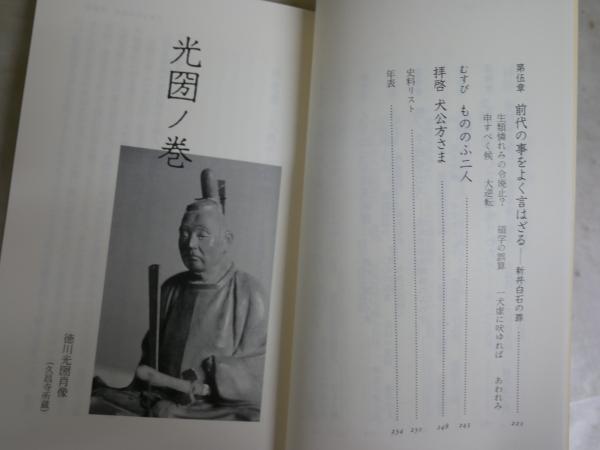 第伍章 前代の事をよく言はざる——新井白石の罪 221
生類憐れみの令廃止? 碩学の誤算 一犬虚に吠ゆれば あわれみ
申すべく候 大逆転
むすび もののふ二人 243
拝啓 犬公方さま 248
史料リスト 252
年表 254
光圀ノ巻
徳川光圀肖像
(久昌寺所蔵)